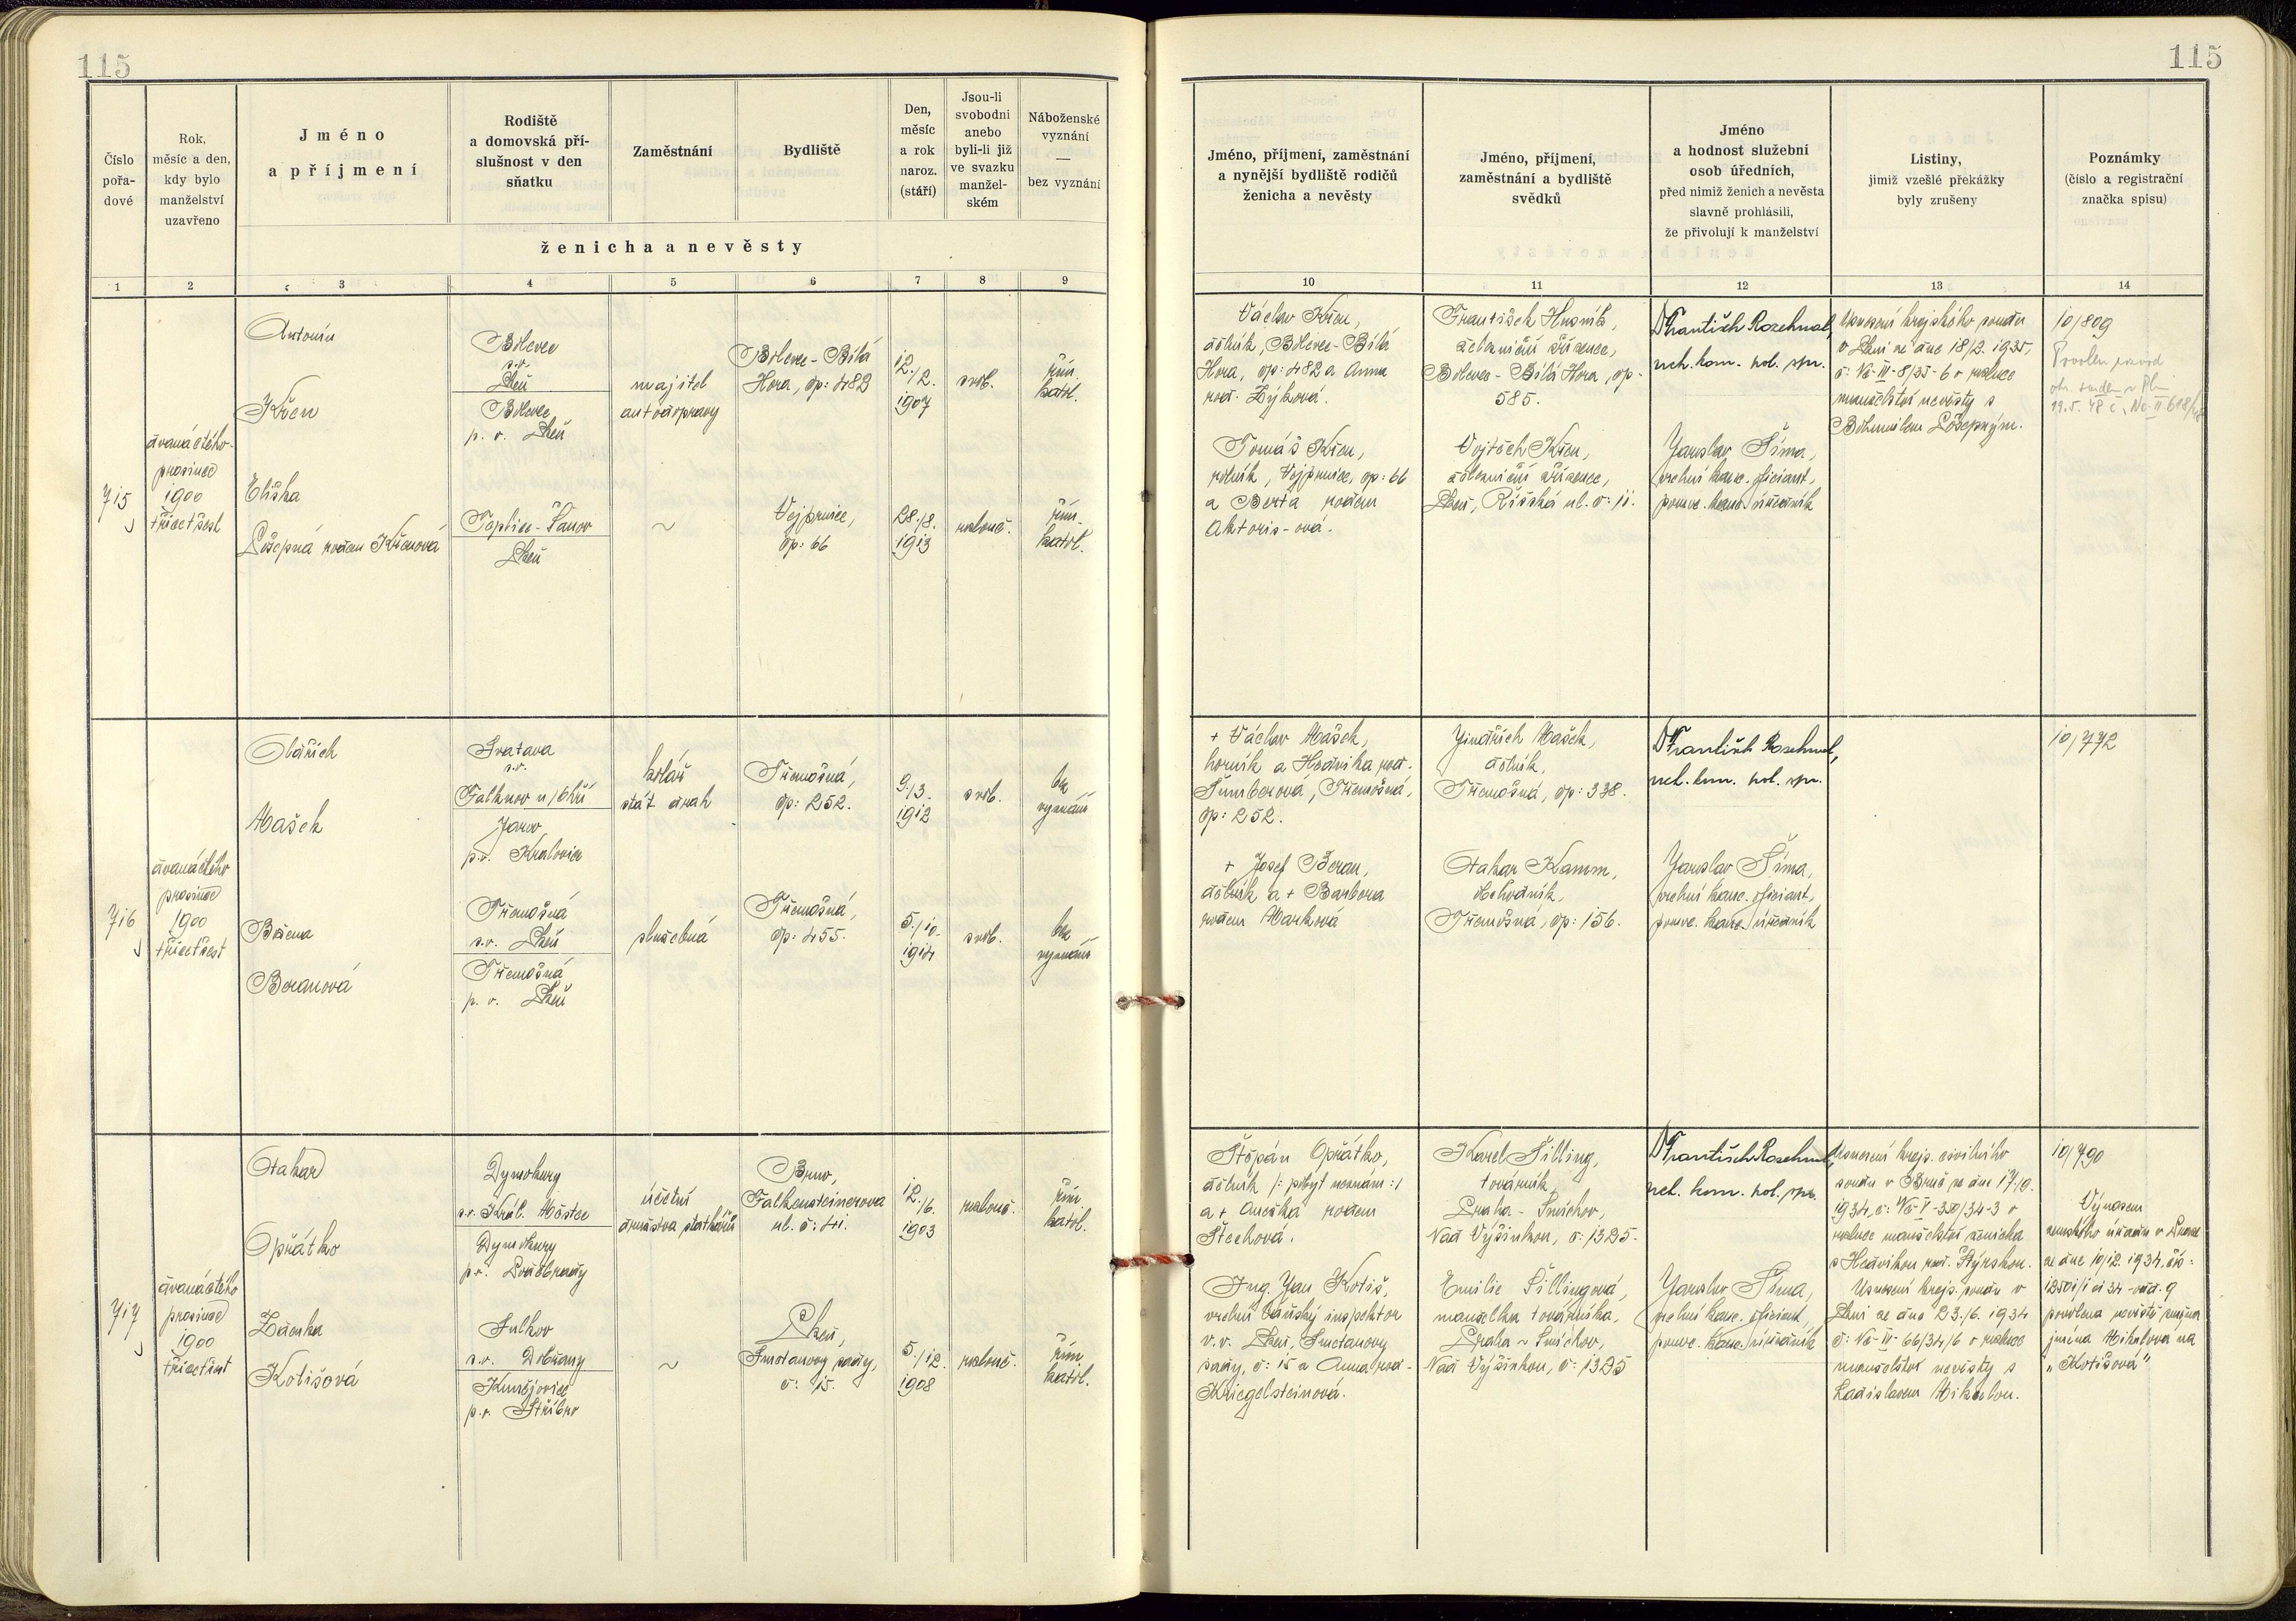 115
115
Číslo
pořa-
dové
Rok,
měsíc a den,
kdy bylo
manželství
uzavřeno
Jméno
a příjmení
Rodiště
a domovská pří-
slušnost v den
sňatku
Zaměstnání
Bydliště
Den,
měsíc
a rok
naroz.
(stáří)
Jsou-li
svobodni
anebo
byli-li již
ve svazku
manžel-
ském
Náboženské
vyznání
—
bez vyznání
ženicha a nevěsty
1 2 3 4 5 6 7 8 9
Jméno, příjmení, zaměstnání
a nynější bydliště rodičů
ženicha a nevěsty
Jméno, příjmení,
zaměstnání a bydliště
svědků
Jméno
a hodnost služební
osob úředních,
před nimiž ženich a nevěsta
slavně prohlásili,
že přivolují k manželství
Listiny,
jimiž vzešlé překážky
byly zrušeny
Poznámky
(číslo a registrační
značka spisu)
10 11 12 13 14
715
dvanáctého
prosince
1900
třicetšest
Antonín
Křen
Eliška
Lošepná rozen Křenová
Bolevec
s.o.
Plzeň
Bolevec,
p. o. Plzeň
Teplice-Šanov
Plzeň
majitel
autodopravy
~
Bolevec-Bílá
Hora, čp: 482
Vejprnice,
čp: 66
12./2.
1907
28./8.
1913
svob.
rozlouč.
řím.
katol.
řím.
katol.
Václav Křen,
dělník, Bolevec-Bílá
Hora, čp: 482 a Anna
roz. Zýková.
Tomáš Křen,
rolník, Vejprnice, čp: 66
a Berta rozen
Aktoris-ová.
František Husník,
železniční zřízenec,
Bolevec-Bílá Hora, čp-
585.
Vojtěch Křen,
železniční zřízenec,
Plzeň, Říšská ul. č: 11.
Dr František Rozehnal,
nch. kom. pol. spr.
Jaroslav Šíma,
vrchní kanc. oficiant,
pověř. kanc. úředník
Usnesení krajského soudu
v Plzni ze dne 18/2. 1935,
č: Nc-III-8/35-6 o rozluce
manželství nevěsty s
Bohumilem Lošepným.
10/809
Povolen rozvod
19.5.48 č. Nc-II-618/48
716
dvanáctého
prosince
1900
třicetšest
Oldřich
Mašek
Božena
Beranová
Svatava
s.o.
Falknov n/Ohří
Jarov
p.o. Kralovice
Třemošná
s.o. Plzeň
Třemošná
p. o. Plzeň
kolář
stát. drah
služebná
Třemošná,
čp: 252.
Třemošná,
čp: 455.
9./3.
1912
5./10.
1914
svob.
svob.
bez
vyznání
bez
vyznání
+ Václav Mašek,
horník a Hedvika roz.
Šumberová, Třemošná,
čp: 252.
+ Josef Beran,
dělník a + Barbora
rozen Marková
Jindřich Mašek,
dělník,
Třemošná, čp: 338.
Otakar Kamm,
obchodník,
Třemošná, čp: 156.
Dr František Rozehnal,
nch. kom. pol. spr.
Jaroslav Šíma,
vrchní kanc. oficiant,
pověř. kanc. úředník
10/772
717
dvanáctého
prosince
1900
třicetšest
Otakar
Opřátko
Zdenka
Kotišová
Dymokury
s.o. Král. Městec
Dymokury
p.o. Poděbrady
Sulkov
s.o. Dobřany
p.o. Stříbro
účetní
družstva statkářů
~
Brno,
Falkensteinerova
ul. č: 41.
Plzeň,
Smetanovy sady,
č: 15.
12./6.
1903
5./12.
1908
rozlouč.
rozlouč.
řím.
katol.
řím.
katol.
Štěpán Opřátko,
dělník /: pobyt neznám :/
a + Anežka rozen
Štechová.
Ing. Jan Kotiš,
vrchní báňský inspektor
v.v. Plzeň, Smetanovy
sady, č: 15 a Anna roz-
Kriegelsteinová.
Karel Šilling,
továrník,
Praha - Smíchov,
Nad Výšinkou, č: 1325.
Emilie Šillingová,
manželka továrníka,
Praha ~ Smíchov,
Nad Výšinkou, č: 1325
Dr František Rozehnal,
nch. kom. pol. spr.
Jaroslav Šíma,
vrchní kanc. oficiant,
pověř. kanc. úředník
Usnesení krajs. civilního
soudu v Brně ze dne
1934, č: Nc-V-350/34-3 o
rozluce manželství ženicha
s Hedvikou roz. Štýrskou.
Usnesení krajs. soudu v
Plzni ze dne 23./6. 1934
č: Nc-III-66/34/6 o rozluce
manželství nevěsty s
Ladislavem Mikulou.
10/790
Výnosem
zemského úřadu v Praze
ze dne 10/12. 1934, čís:
povolena nevěstě změna
jména Mikulova na
„Kotišová"